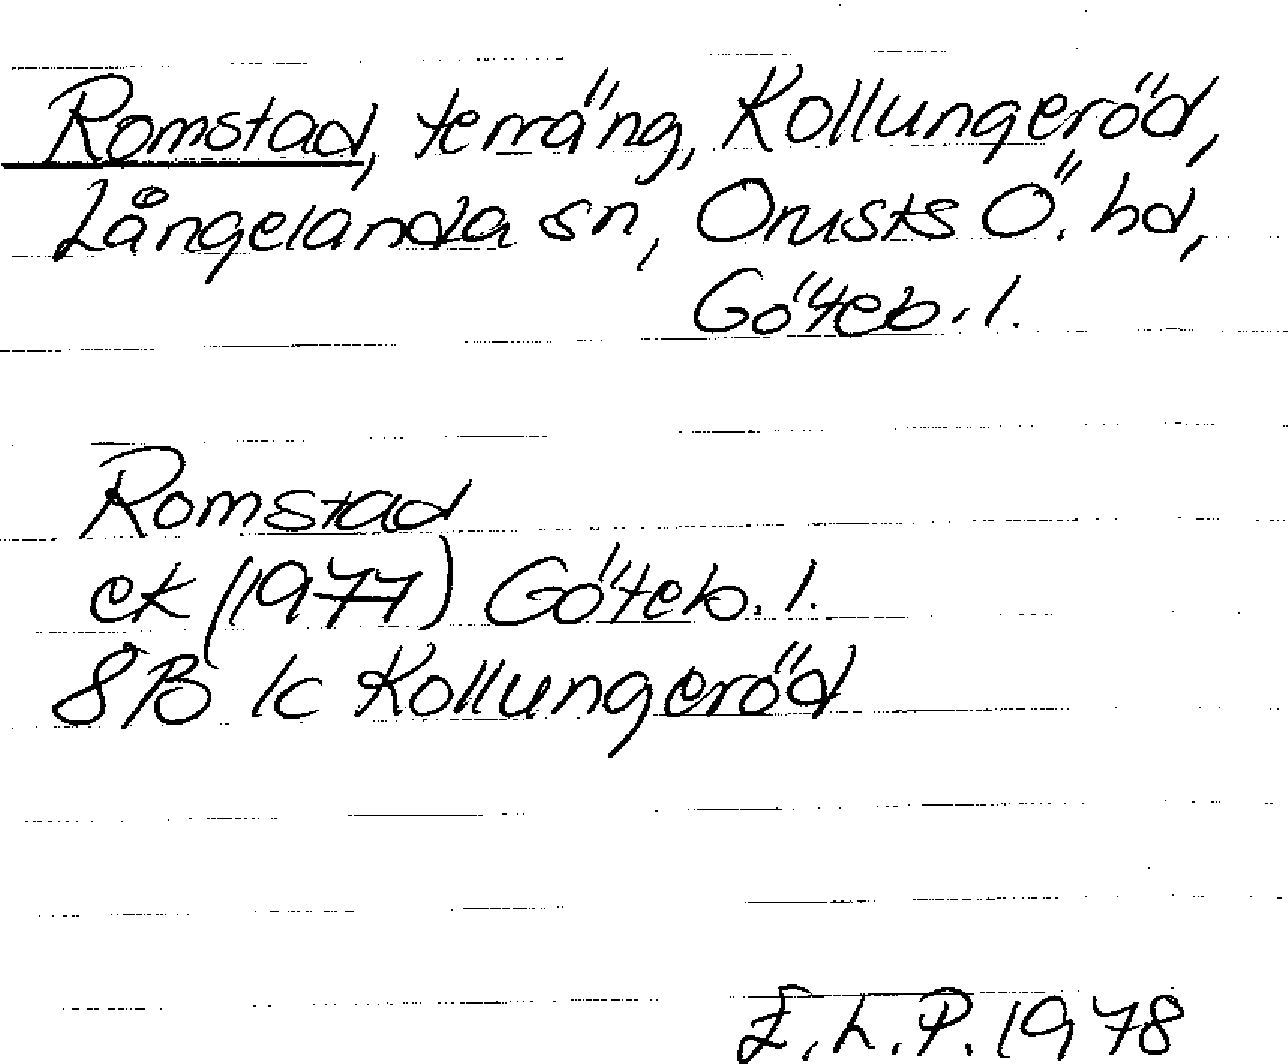 Romstad, terräng, Kollungeröd,
Långelanda sn, Orusts Ö. hd,
Göteb. l.
Romstad
ek (1977) Göteb. l.
8B 1c Kollungeröd
E.L.P. 1978